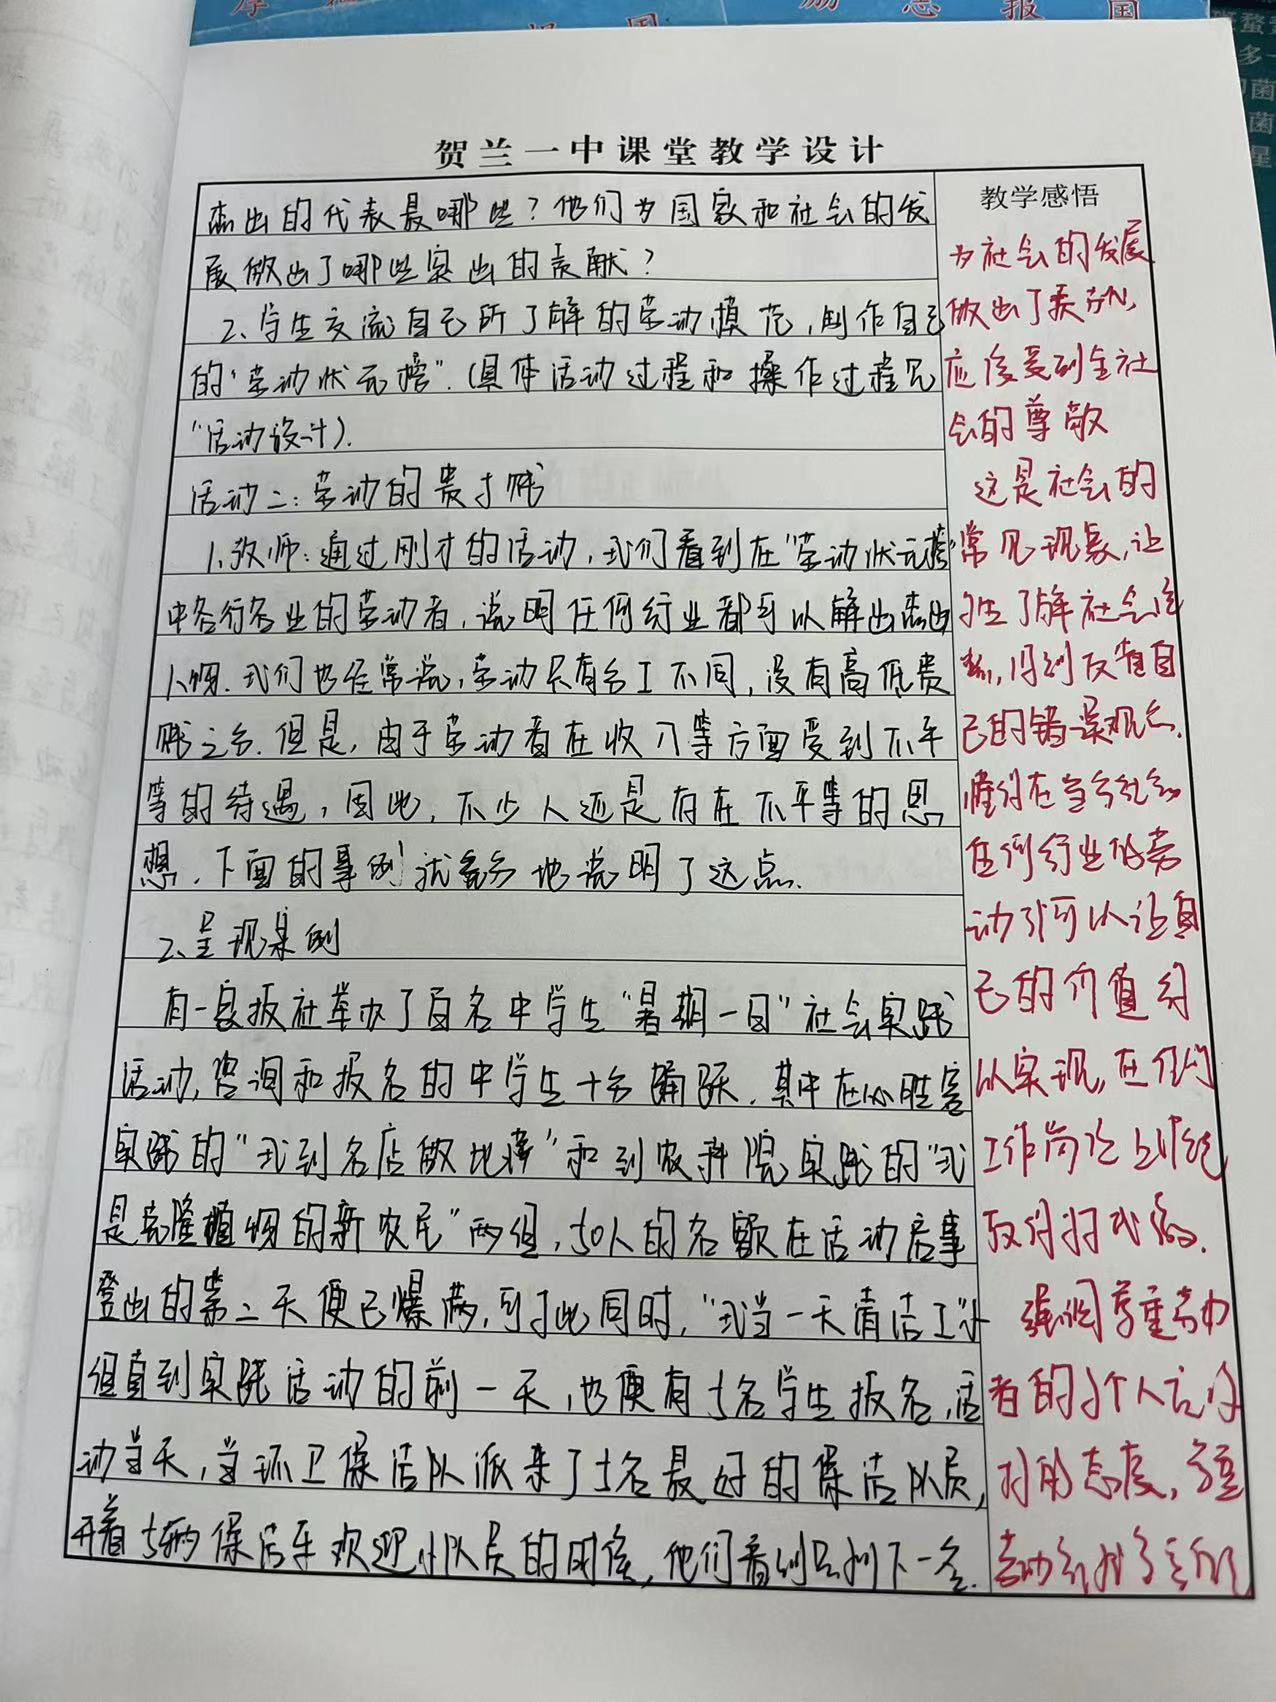 贺兰一中课堂教学设计
杰出的代表是哪些？他们为国家和社会的发
展做出了哪些突出的贡献？
2、学生交流自己所了解的劳动模范，制作自己
的“劳动状元榜”.（具体活动过程和操作过程见
“活动设计）.
活动二：劳动的贵与贱
1.教师：通过刚才的活动，我们看到在“劳动状元榜”
中各行各业的劳动者，说明任何行业都可以解出杰出
人物.我们也经常说，劳动只有分工不同，没有高低贵
贱之分.但是，由于劳动者在收入等方面受到不平
等的待遇，因此，不少人还是存在不平等的思
想.下面的事例就充分地说明了这点.
2、呈现案例
有一家报社举办了百名中学生“暑期一日”社会实践
活动，咨询和报名的中学生十分踊跃.其中在必胜客
实践的“我到名店做比萨”和到农科院实践的“我
是克隆植物的新农民”两组，50人的名额在活动启事
登出的第二天便已爆满，与此同时，“我当一天清洁工”
但直到实践活动的前一天，也便有5名学生报名，活
动当天，当环卫保洁队派来了5名最好的保洁队员，
开着5辆保洁车欢迎小队员的时候，他们看到只剩下一名.
教学感悟
为社会的发展
做出了贡献，
应该受到全社
会的尊敬
这是社会的
常见现象，让
学生了解社会
得到反省自
己的错误观点.
懂得在当今社会
任何行业的劳
动者可以让自
己的价值得
以实现，在任何
工作岗位上
取得好成绩.
强调尊重劳动
者的
的态度，